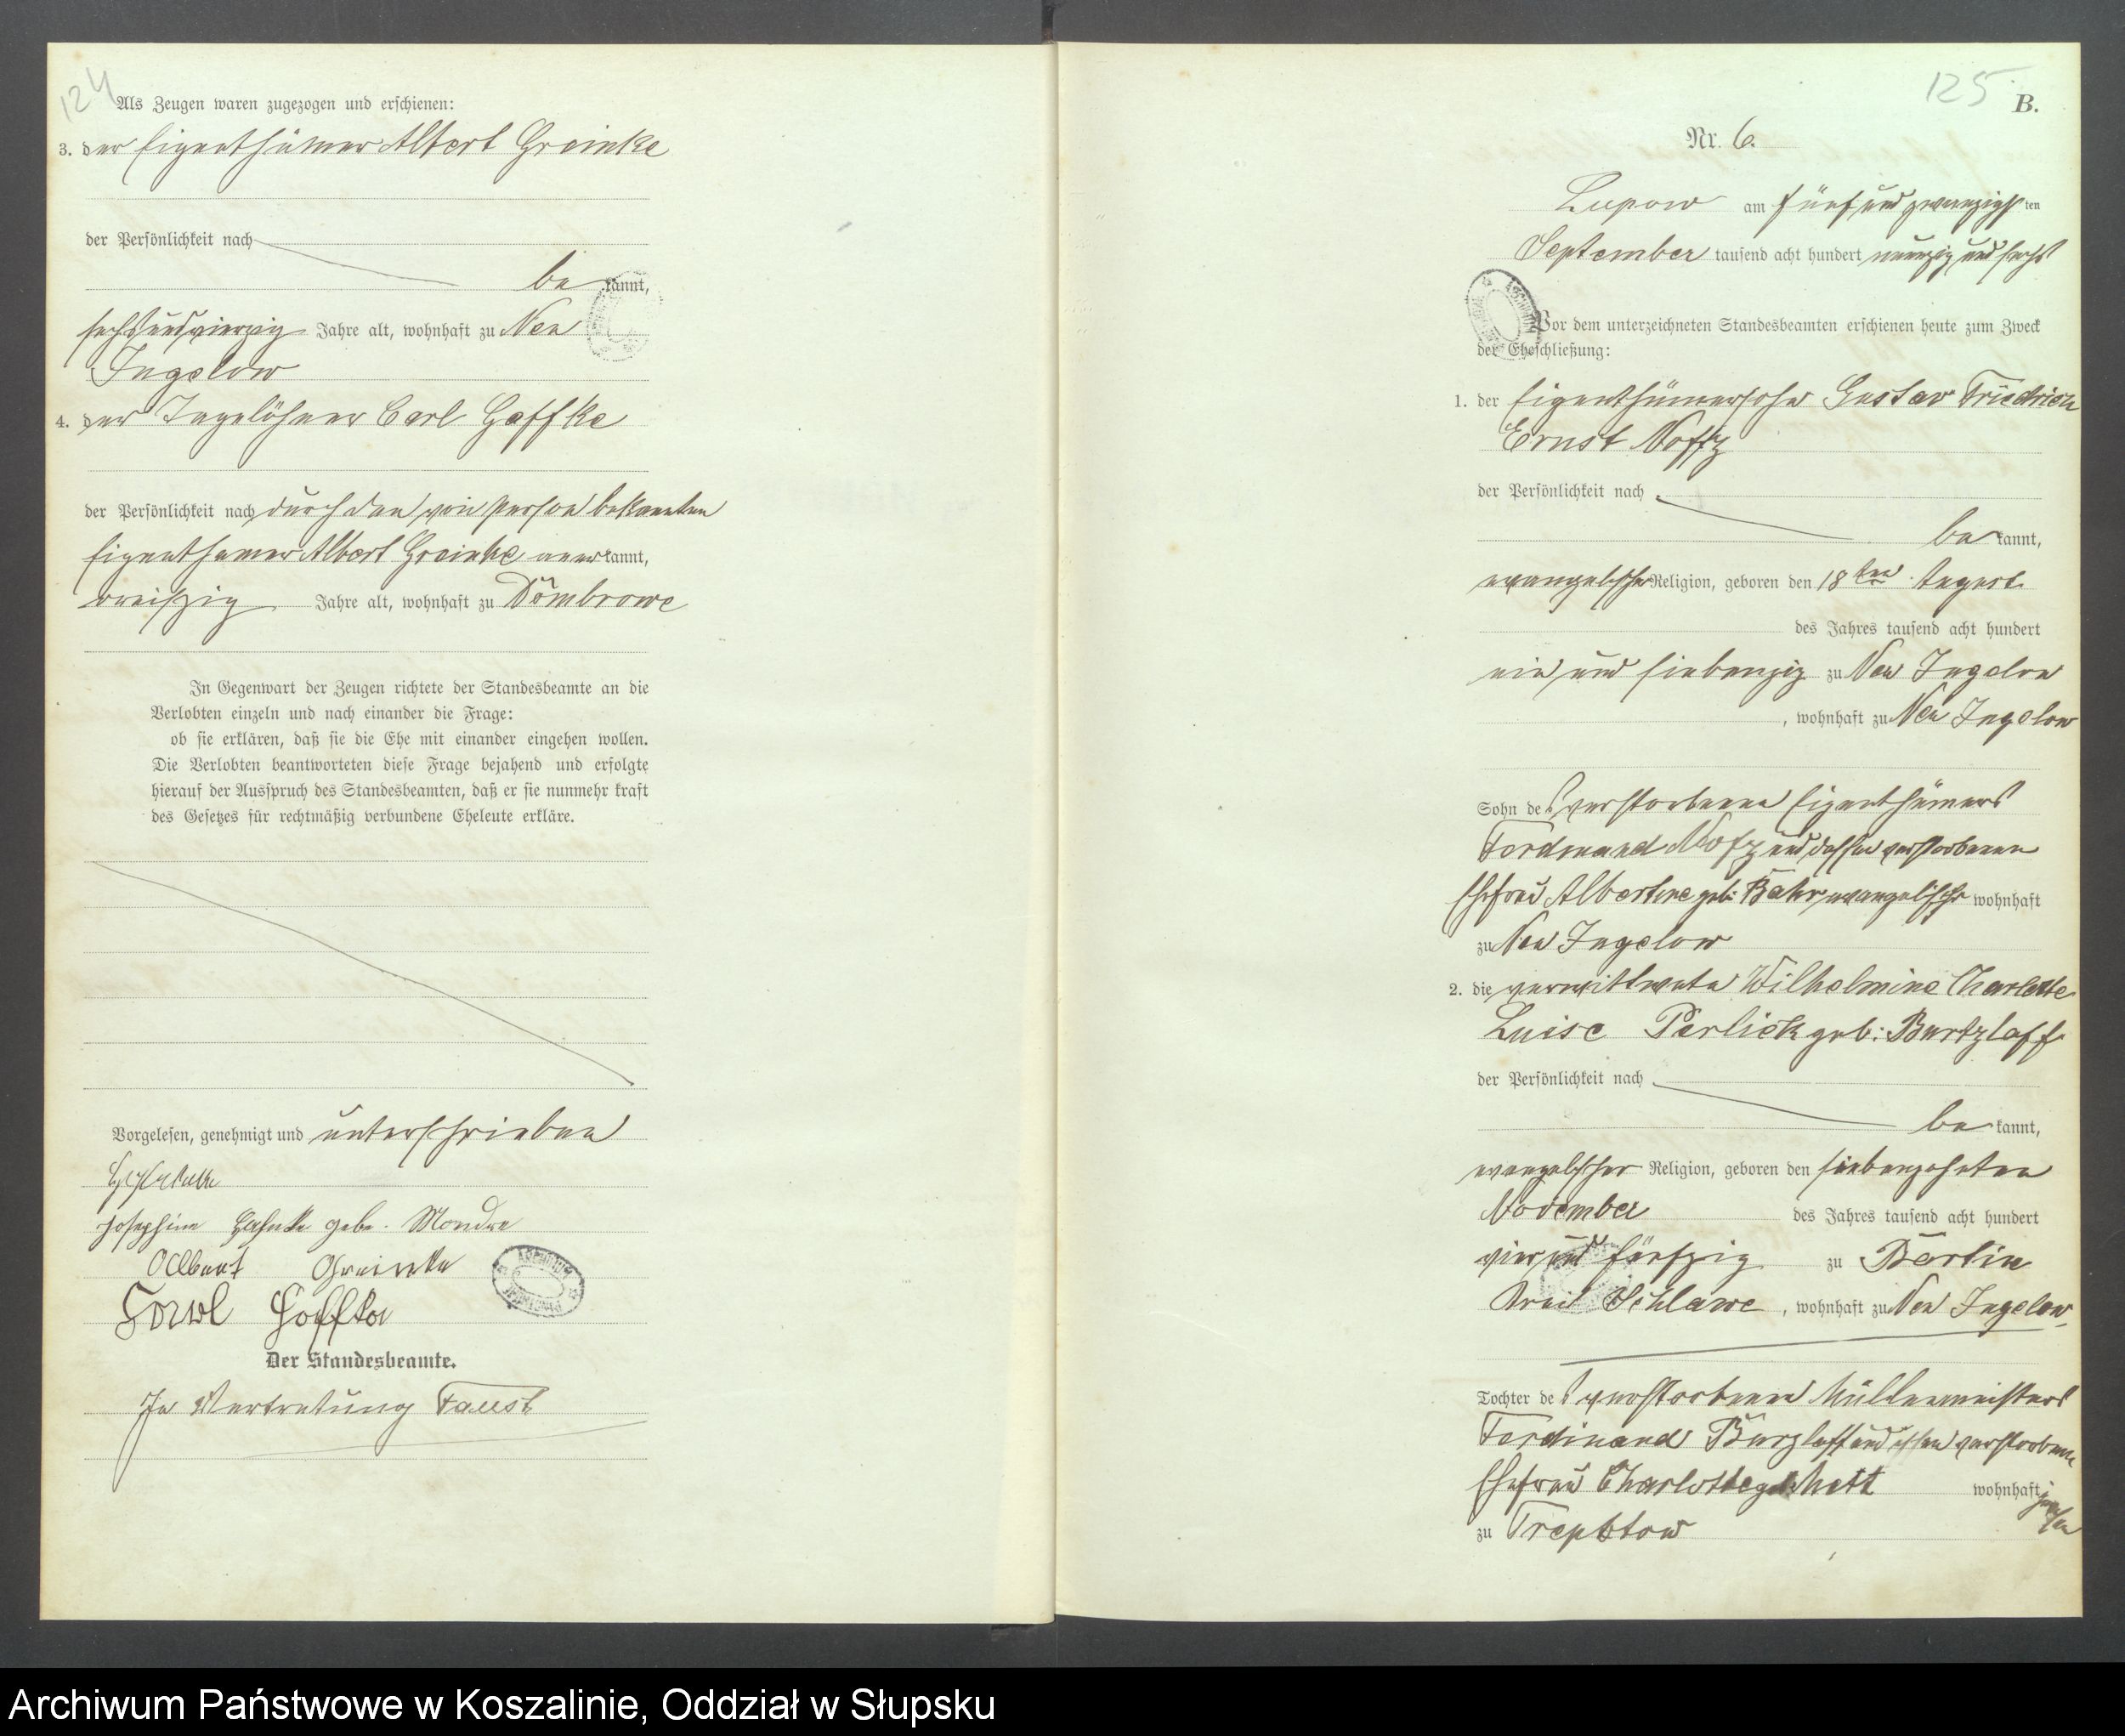 124
Als Zeugen waren zugezogen und erschienen:
3. der Eigenthümer Albert Greinke
der Persönlichkeit nach
be kannt,
sechsundvierzig Jahre alt, wohnhaft zu Neu
Jugelow
4. der Tagelöhner Carl Goffke
der Persönlichkeit nach durch den von Person bekannten
Eigenthümer Albert Greinke aner kannt,
dreißig Jahre alt, wohnhaft zu Dombrowe
In Gegenwart der Zeugen richtete der Standesbeamte an die
Verlobten einzeln und nach einander die Frage:
ob sie erklären, daß sie die Ehe mit einander eingehen wollen.
Die Verlobten beantworteten diese Frage bejahend und erfolgte
hierauf der Ausspruch des Standesbeamten, daß er sie nunmehr kraft
des Gesetzes für rechtmäßig verbundene Eheleute erkläre.
Vorgelesen, genehmigt und unterschrieben
Josephine geb.
Albert Greinke
Goffke
Der Standesbeamte.
In Vertretung Faust
125
B.
Nr. 6.
Lupow am fünf und zwanzigs ten
September tausend acht hundert neunzig und sechs
Vor dem unterzeichneten Standesbeamten erschienen heute zum Zweck
der Eheschließung:
1. der Eigenthümersohn Gustav Friedrich
Ernst Noffz
der Persönlichkeit nach
be kannt,
evangelischer Religion, geboren den 18ten August
des Jahres tausend acht hundert
ein und siebenzig zu Neu Jugelow
, wohnhaft zu Neu Jugelow
Sohn des verstorbenen Eigenthümers
Ferdinand Noffz und dessen verstorbenen
Ehefrau Albertine geb: Bahr, evangelisch wohnhaft
zu Neu Jugelow
2. die verwittwete Wilhelmine Charlotte
Luise Perlick geb: Burtzlaff
der Persönlichkeit nach
be kannt,
evangelischer Religion, geboren den siebenzehnten
November des Jahres tausend acht hundert
vier und fünfzig zu Bartin
Kreis Schlawe, wohnhaft zu Neu Jugelow
Tochter des verstorbenen Müllermeisters
Ferdinand Burzlaff und dessen verstorbenen
Ehefrau Charlotte geb. wohnhaft gewesen
zu Treptow
Archiwum Państwowe w Koszalinie, Oddział w Słupsku